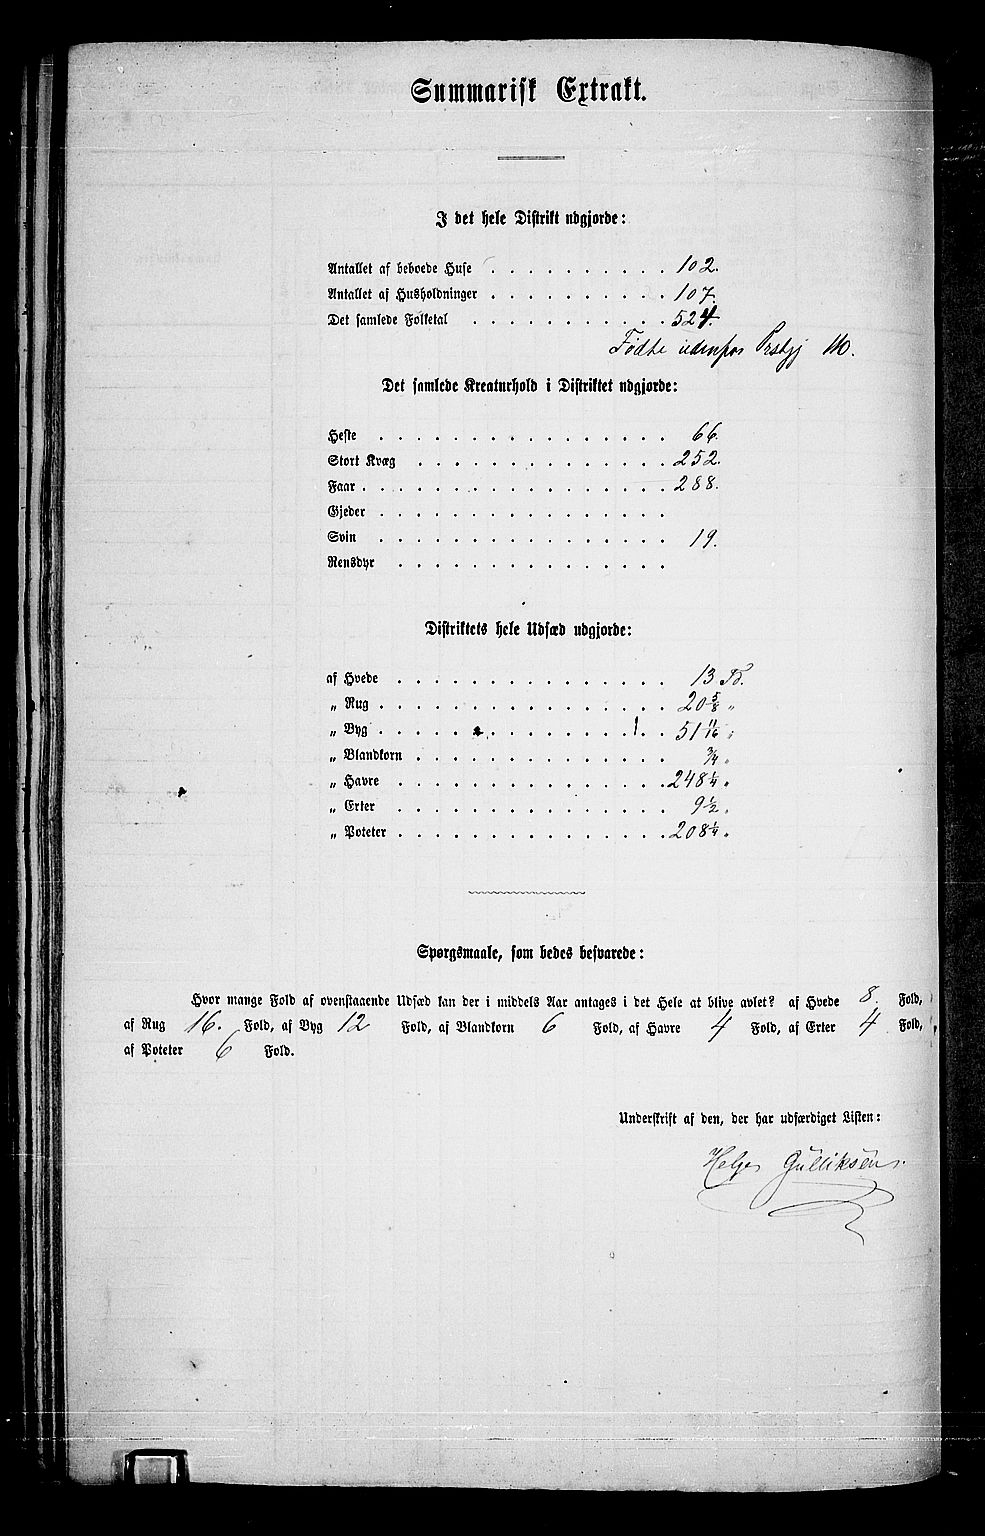 Summarisk Extrakt.
I det hele Distrikt udgjorde:
Antallet af beboede Huse . . . . . . . . . . 102.
Antallet af Husholdninger . . . . . . . . . . 107.
Det samlede Folketal . . . . . . . . . . . 524.
Fødte udenfor Prstgj 110.
Det samlede Kreaturhold i Distriktet udgjorde:
Heste . . . . . . . . . . . . . . . . 66.
Stort Kvæg . . . . . . . . . . . . . . 252.
Faar . . . . . . . . . . . . . . . . . 288.
Gjeder . . . . . . . . . . . . . . . .
Svin . . . . . . . . . . . . . . . . 19.
Rensdyr . . . . . . . . . . . . . . .
Distriktets hele Udsæd udgjorde:
af Hvede . . . . . . . . . . . . . . . 13 Td.
„ Rug . . . . . . . . . . . . . . . . 20 5/8 „
„ Byg . . . . . . . . . . . . . . . . 51 11/16 „
„ Blandkorn . . . . . . . . . . . . . . 3/4 „
„ Havre . . . . . . . . . . . . . . . 248 1/4 „
„ Erter . . . . . . . . . . . . . . . 9 1/2 „
„ Poteter . . . . . . . . . . . . . . . 208 1/4 „
Spørgsmaale, som bedes besvarede:
Hvor mange Fold af ovenstaaende Udsæd kan der i middels Aar antages i det Hele at blive avlet? af Hvede 8. Fold,
af Rug 16. Fold, af Byg 12 Fold, af Blandkorn 6 Fold, af Havre 4 Fold, af Erter 4 Fold,
af Poteter 6 Fold.
Underskrift af den, der har udfærdiget Listen:
Helge Gulliksen.